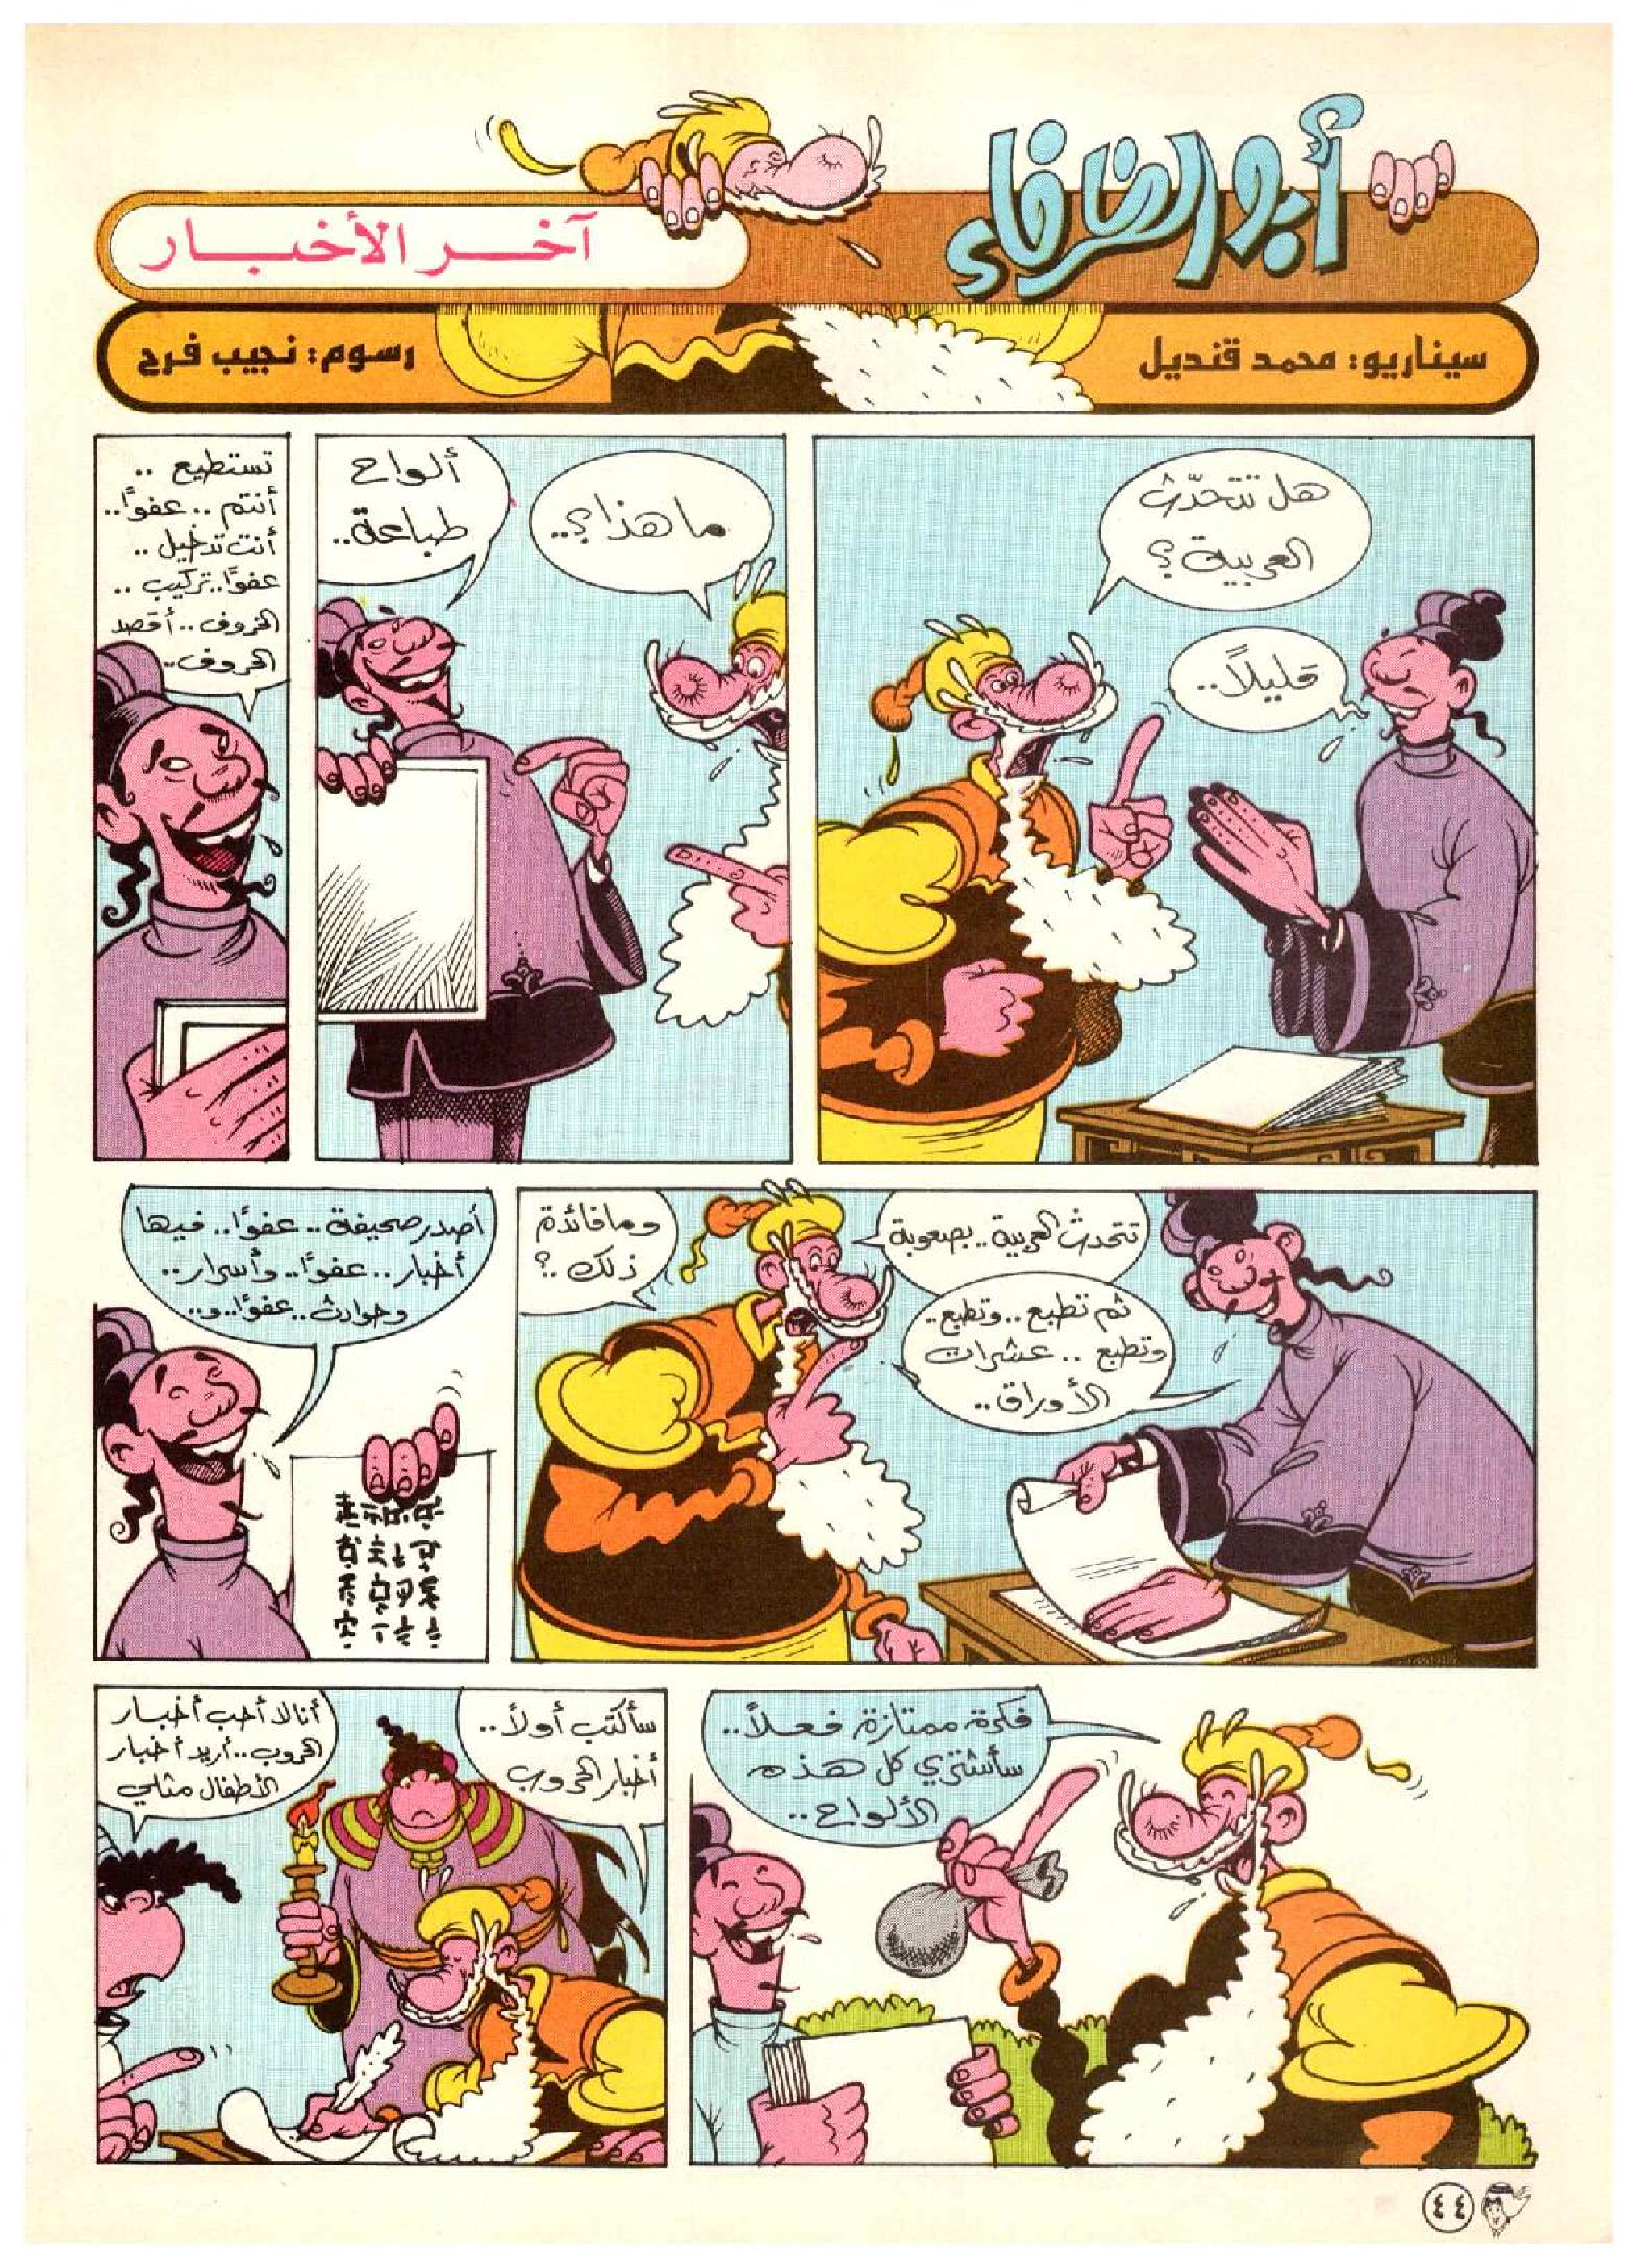 أبو الظرفاء
آخر الأخبار
سيناريو: محمد قنديل
رسوم: نجيب فرح
هل تتحدّث
العربية؟
قليلاً..
ما هذا؟..
ألواح
طباعة..
تستطيع ..
أنتم .. عفوًا..
أنت تدخيل ..
عفوًا.. تركيب ..
الخروف .. أقصد
الحروف..
تتحدث العربية .. بصعوبة
ثم تطبع .. وتطبع..
وتطبع .. عشرات
الأوراق ..
وما فائدة
ذلك ..؟
أصدر صحيفة .. عفوًا.. فيها
أخبار .. عفوًا.. وأسرار..
وحوادث .. عفوًا.. و..
فكرة ممتازة فعلاً..
سأشتري كل هذه
الألواح ..
سأكتب أولاً..
أخبار الحروب
أنا لا أحب أخبار
الحروب .. أريد أخبار
الأطفال مثلي
٤٤